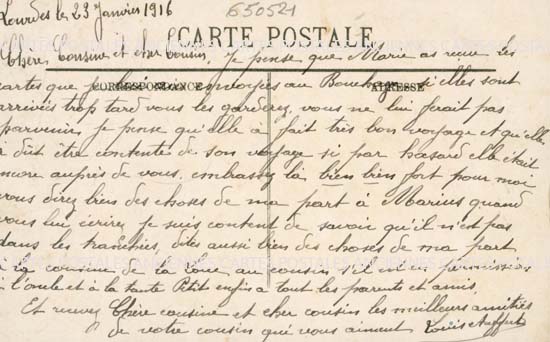 Lourdes le 23 Janvier 1916
650521
CARTE POSTALE
Chère Cousine et cher Cousin, Je pense que Marie as reçue les
CORRESPONDANCE
ADRESSE
cartes que je lui ai envoyées au Bouchage si elles sont
arrivées trop tard vous les garderez, vous ne lui ferait pas
parvenir je pense qu'elle a fait très bon voyage et qu'elle
a dût être contente de son voyage si par hasard elle était
encore auprès de vous, embrassez la bien bien fort pour moi
vous direz bien des choses de ma part à Marius quand
vous lui écrirez je suis content de savoir qu'il n'est pas
dans les tranchées, dites aussi bien des choses de ma part
à la cousine de la au cousin s'il est en permission
à l'oncle et à la tante Petit enfin a tout les parents et amis.
Et recevez Chère cousine et cher cousin les meilleurs amitiés
de votre cousin qui vous aiment Louis